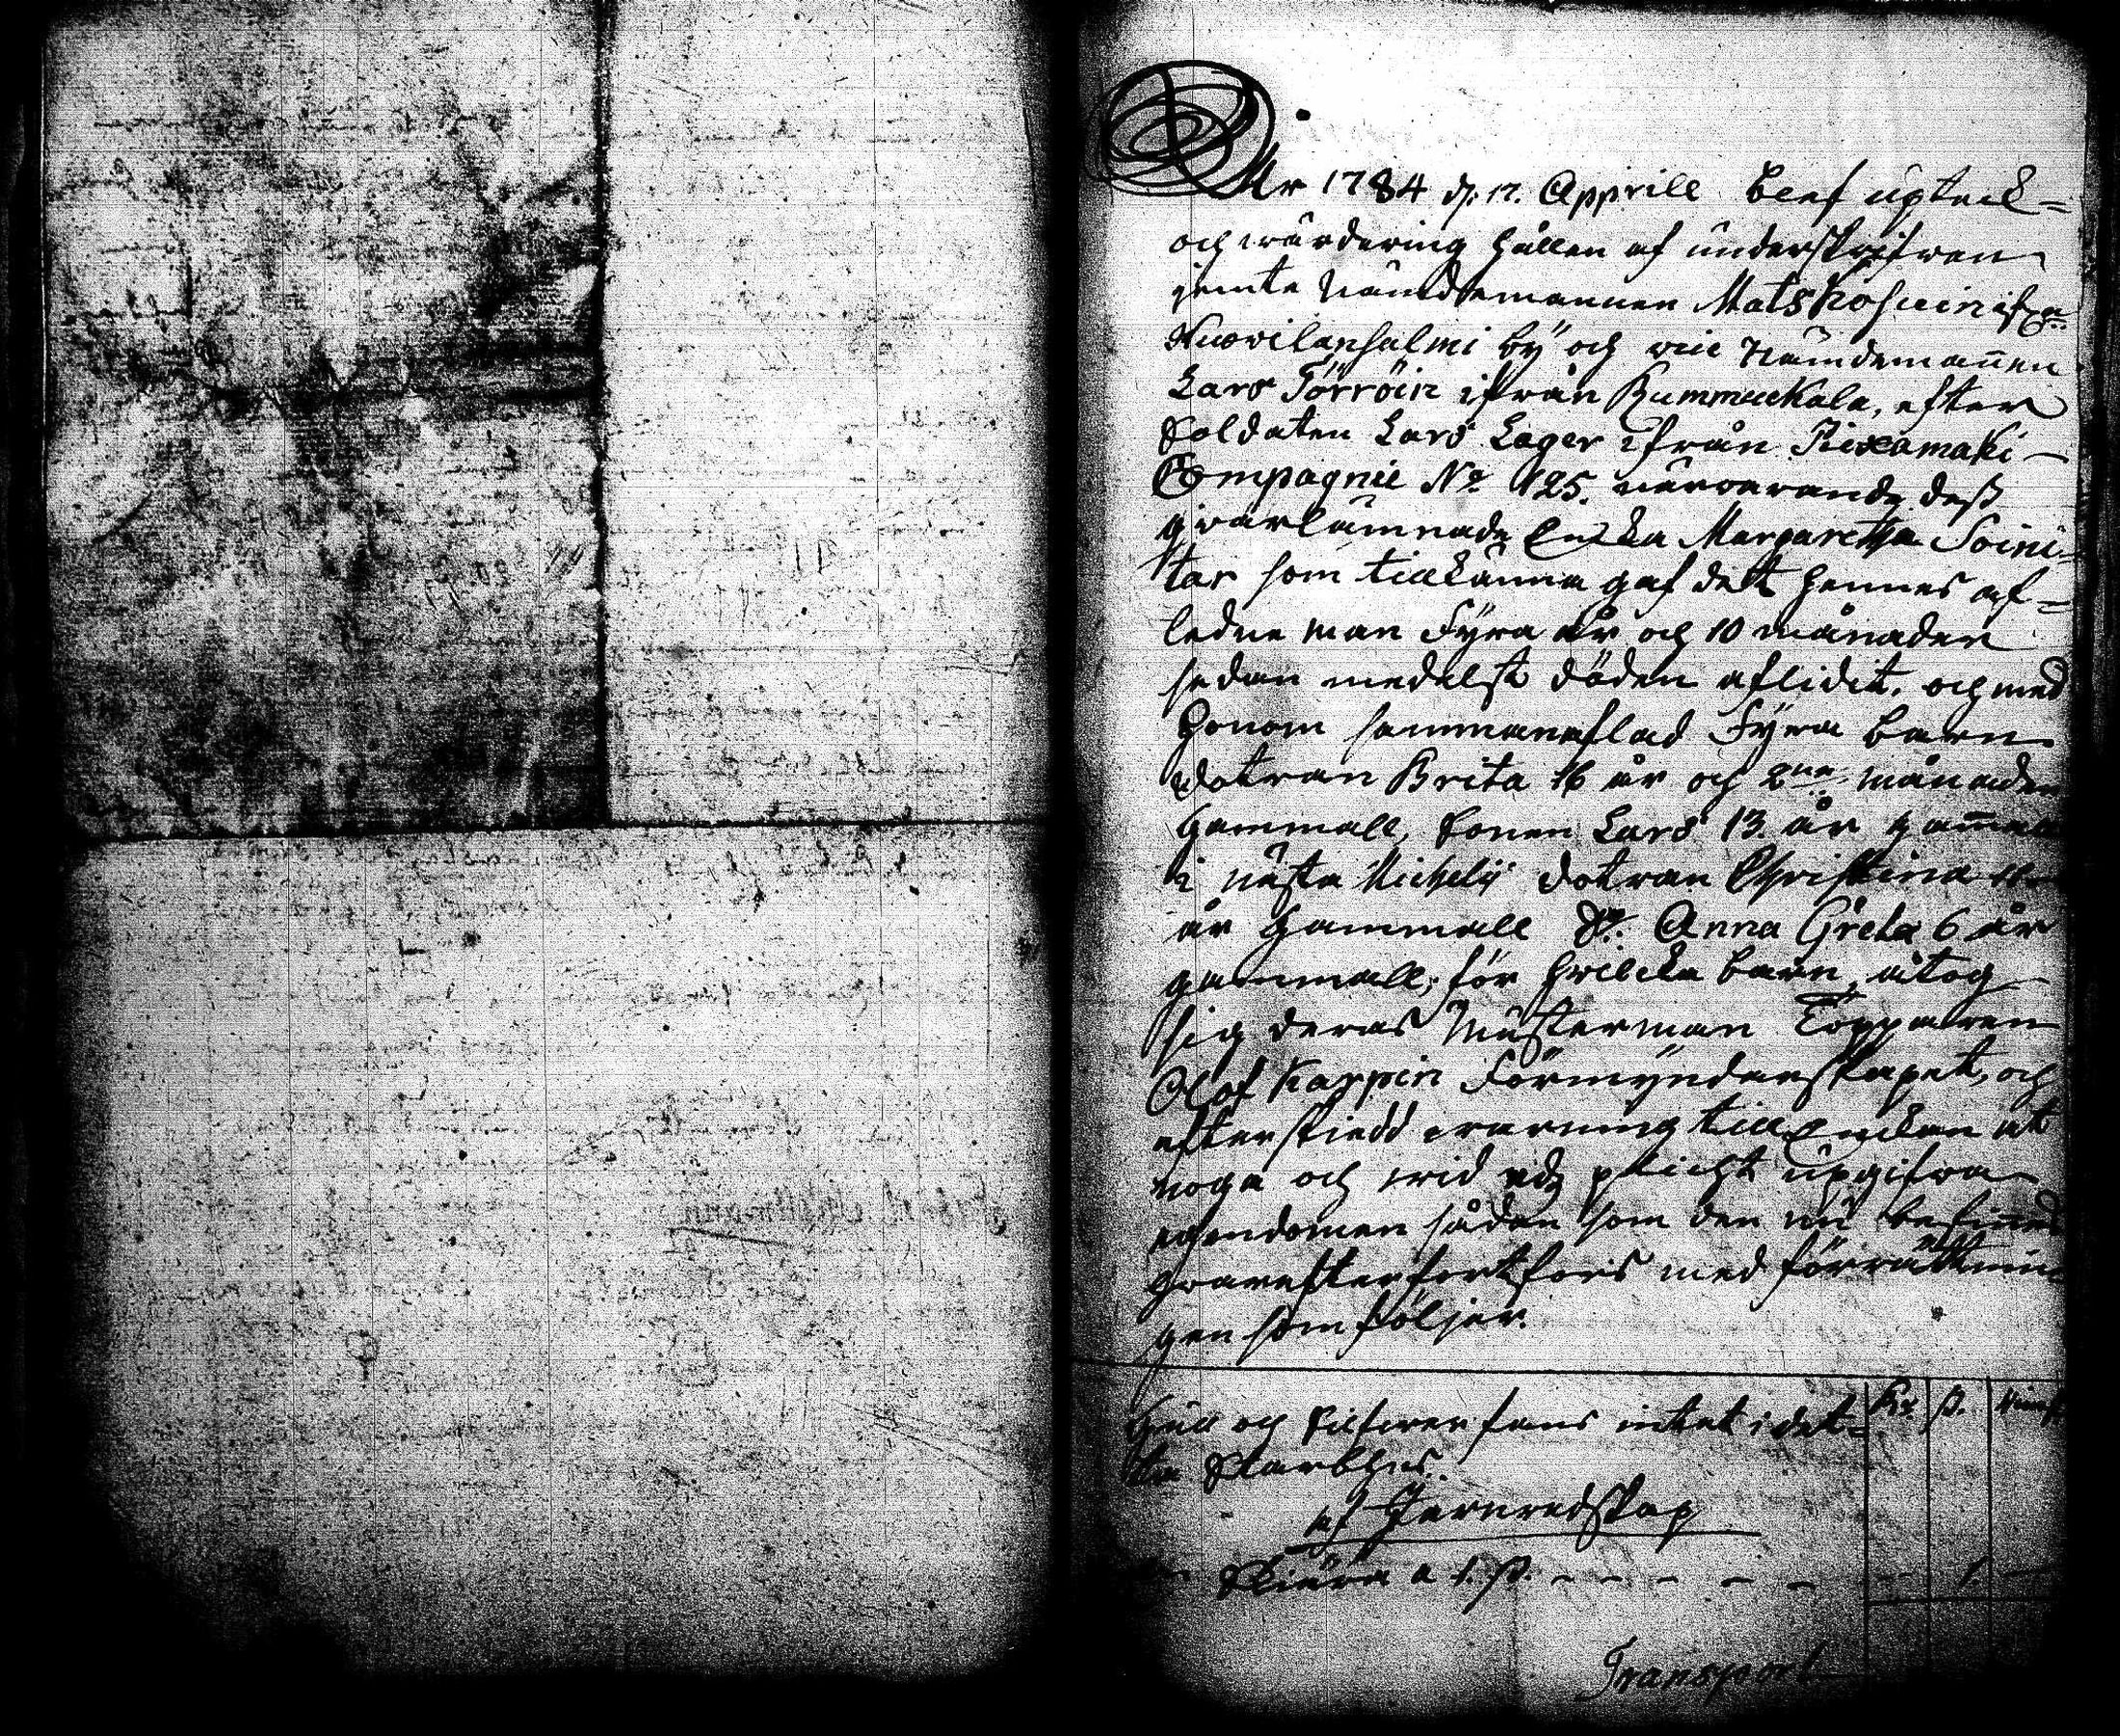 År 1784 d. 17. Apprill blef uptek=
och wärdering hållen af underskrifwen
jemte Nämdemannen Mats Kosuin ifrå
Kuwilansalmi by och vice Nämdemannen
Lars Törröin ifrån Kummuckala, efter
Soldaten Lars Lager ifrån Rixamaki
Compagnie No 125. närwarande dess
qwarlämnade Enka Margaretha Soini-
tar som tillkänna gaf dett hennes af=
ledne man Fyra år och 10 månader
sedan medelst döden aflidit. och med
honom sammanaflad Fyra barn
dotran Brita 16 år och månader
gammall, Sonen Lars 13 år gammall
i nästa Michelij dotran Christina
år gammall Do. Anna Greta 6 år
gammall; för hwilcka barn, åtog
sig deras Måsterman Torpparen
Olof Karpin Förmynderskapet, och
efter skiedd warning till Enckan at
noga och wid edz plicht upgifwa
egendomen sådan som den nu befinnes
hwarefter fortfors med förrättnin
gen som följer.
Gull och Silfwer fans intet i det=
ta Starbhus.
Rd. ß.
af Jernredskap
Skiära a 1. ß. - - - - - - 1.
Transport